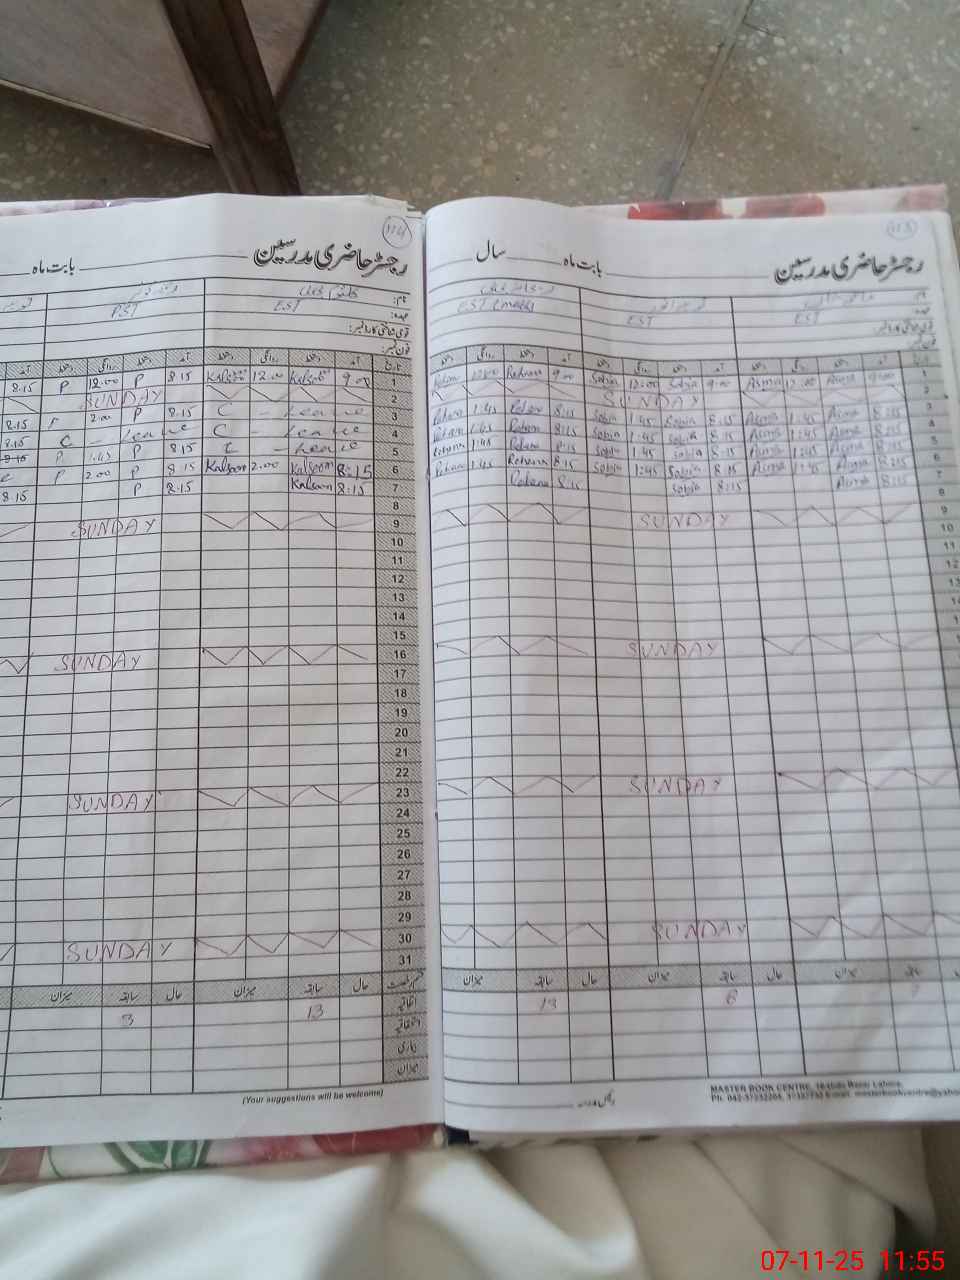 114
رجسٹر حاضری مدرسین
بابت ماہ
نام:
عہدہ:
قومی شناختی کارڈ نمبر:
فون نمبر:
PST EST
تاریخ آمد دستخط روانگی دستخط آمد دستخط روانگی دستخط
8.15 P 12.00 P 8 15 Kalsoom 12.00 Kalsoom 9.00 1
SUNDAY 2
8.15 P 2.00 P 8.15 C - Leave 3
8.15 C - Leave C - Leave 4
8.15 P 1.45 P 8.15 C - Leave 5
P 2.00 P 8.15 Kalsoom 2.00 Kalsoom 8:15 6
8.15 P 8.15 Kalsoom 8:15 7
8
SUNDAY 9
10
11
12
13
14
15
SUNDAY 16
17
18
19
20
21
22
SUNDAY 23
24
25
26
27
28
29
SUNDAY 30
31
میزان سابقہ حال میزان سابقہ حال
اتفاقیہ
3 13
بیماری
میزان
(Your suggestions will be welcome)
113
رجسٹر حاضری مدرسین
بابت ماہ سال
نام:
عہدہ:
EST (math) EST EST
فون نمبر:
Rehana 12.00 Rehana 9.00 Sobia 12:00 Sobia 9:00 Asma 12:00 Asma 9:00 1
SUNDAY 2
Rehana 1:45 Rehana 8:15 Sobia 1:45 Sobia 8:15 Asma 1:45 Asma 8:15 3
Rehana 1:45 Rehana 8:15 Sobia 1:45 Sobia 8:15 Asma 1:45 Asma 8:15 4
Rehana 1:45 Rehana 8:15 Sobia 1:45 Sobia 8:15 Asma 1:45 Asma 8:15 5
Rehana 1:45 Rehana 8:15 Sobia 1:45 Sobia 8:15 Asma 1:45 Asma 8:15 6
Rehana 8:15 Sobia 8:15 Asma 8:15 7
8
SUNDAY 9
10
11
12
13
SUNDAY
SUNDAY
SUNDAY
میزان سابقہ حال میزان سابقہ حال میزان سابقہ
13 6
رئیس مدرسہ
MASTER BOOK CENTRE, Lahore.
07-11-25 11:55